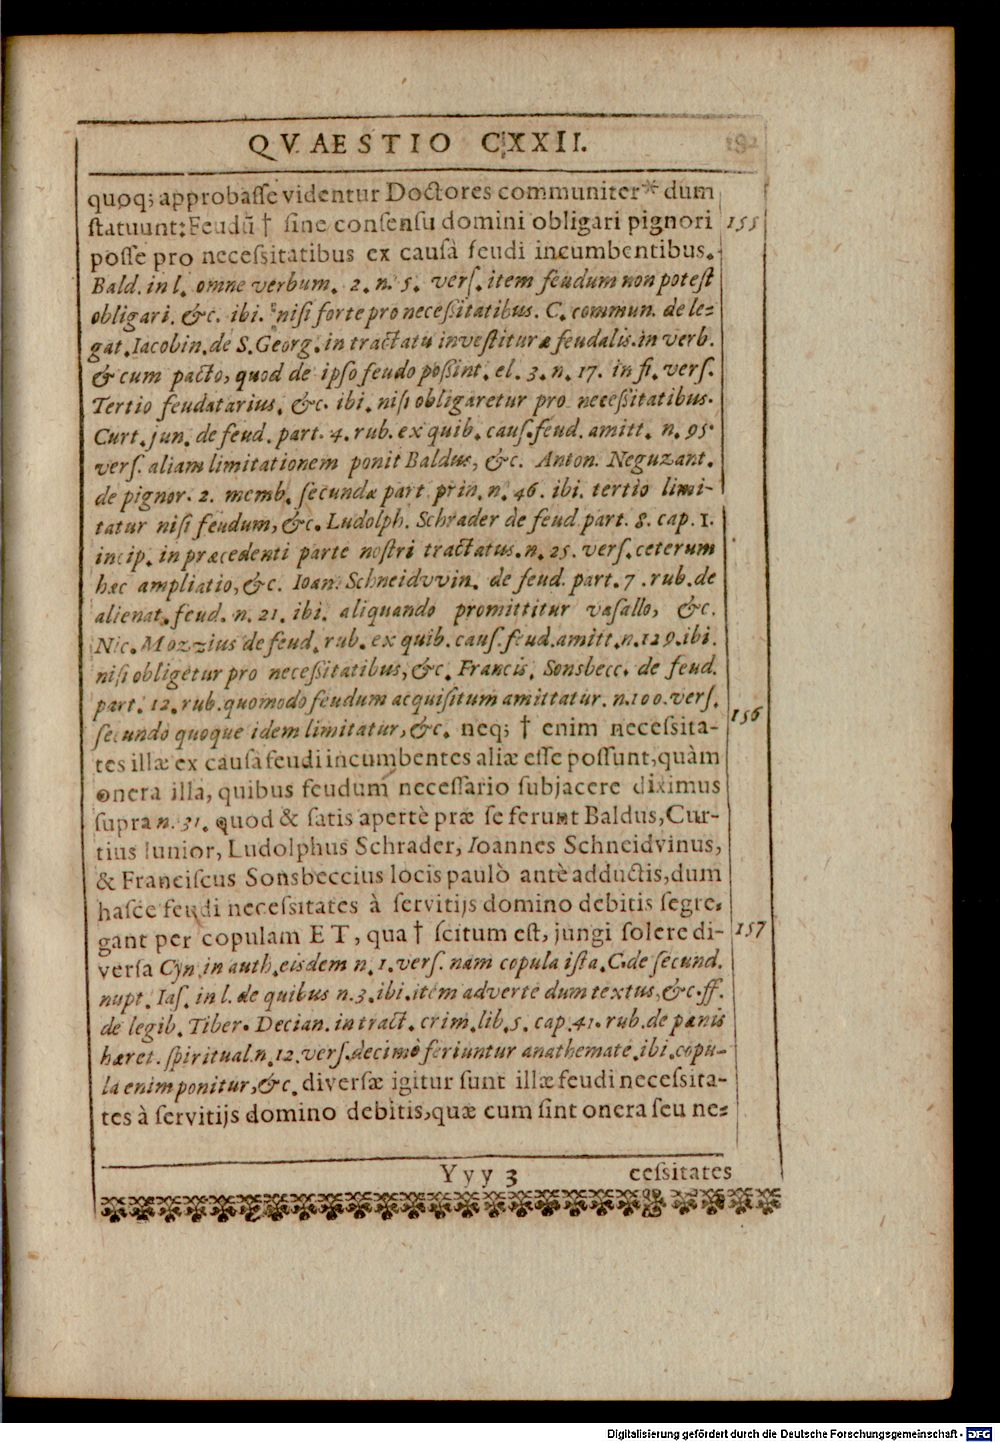 QVAESTIO CXXII.
quoq; approbasse videntur Doctores communiter* dum
statuunt: Feudū † sine consensu domini obligari pignori 155
posse pro necessitatibus ex causâ feudi incumbentibus.
Bald. in l. omne verbum. 2. n. 5. vers. item feudum non potest
obligari. &c. ibi. nisi forte pro necessitatibus. C. commun. de le-
gat. Iacobin. de S. Georg. in tractatu investituræ feudalis. in verb.
& cum pacto, quod de ipso feudo possint. el. 3. n. 17. in fi. vers.
Tertio feudatarius. &c. ibi. nisi obligaretur pro necessitatibus.
Curt. jun. de feud. part. 4. rub. ex quib. caus. feud. amitt. n. 95.
vers. aliam limitationem ponit Baldus, &c. Anton. Neguzant.
de pignor. 2. memb. secundæ part. prin. n. 46. ibi. tertio limi-
tatur nisi feudum, &c. Ludolph. Schrader de feud. part. 8. cap. 1.
incip. in præcedenti parte nostri tractatus. n. 25. vers. ceterum
hæc ampliatio, &c. Ioan. Schneidvvin. de feud. part. 7. rub. de
alienat. feud. n. 21. ibi. aliquando promittitur vasallo, &c.
Nic. Mozzius de feud. rub. ex quib. caus. feud. amitt. n. 129. ibi.
nisi obligetur pro necessitatibus, &c. Francis. Sonsbecc. de feud.
part. 12. rub. quomodo feudum acquisitum amittatur. n. 100. vers.
secundò quoque idem limitatur, &c. neq; † enim necessita- 156
tes illæ ex causâ feudi incumbentes aliæ esse possunt, quàm
onera illa, quibus feudum necessario subjacere diximus
supra n. 31. quod & satis apertè præ se ferunt Baldus, Cur-
tius Iunior, Ludolphus Schrader, Ioannes Schneidvinus,
& Franciscus Sonsbeccius locis paulò antè adductis, dum
hasce feudi necessitates à servitijs domino debitis segre-
gant per copulam ET, qua † scitum est, jungi solere di- 157
versa Cyn. in auth. eisdem n. 1. vers. nam copula ista. C. de secund.
nupt. Ias. in l. de quibus n. 3. ibi. item adverte dum textus, &c. ff.
de legib. Tiber. Decian. in tract. crim. lib. 5. cap. 41. rub. de pænis
hæret. spiritual. n. 12. vers. decimò feriuntur anathemate. ibi. copu-
la enim ponitur, &c. diversæ igitur sunt illæ feudi necessita-
tes à servitijs domino debitis, quæ cum sint onera seu ne-
Yyy 3 cessitates
Digitalisierung gefördert durch die Deutsche Forschungsgemeinschaft - DFG